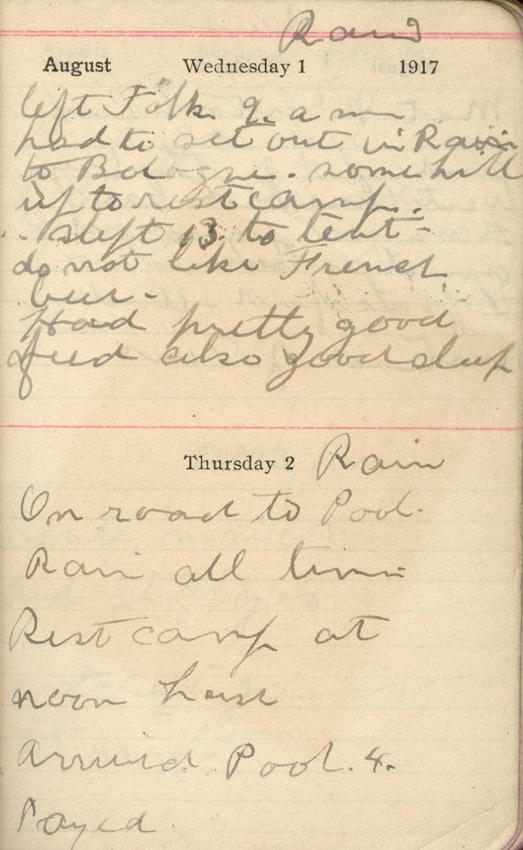 Rain
August Wednesday 1 1917
left Folk. 9. a m
had to set out in Rain
to Bologne. some hill
up to rest camp.
slept 13. to tent -
do not like French
beer -
Had pretty good
feed also good sleep
Thursday 2 Rain
On road to Pool.
Rain all time
Rest camp at
noon
arrived Pool. 4.
Payed.